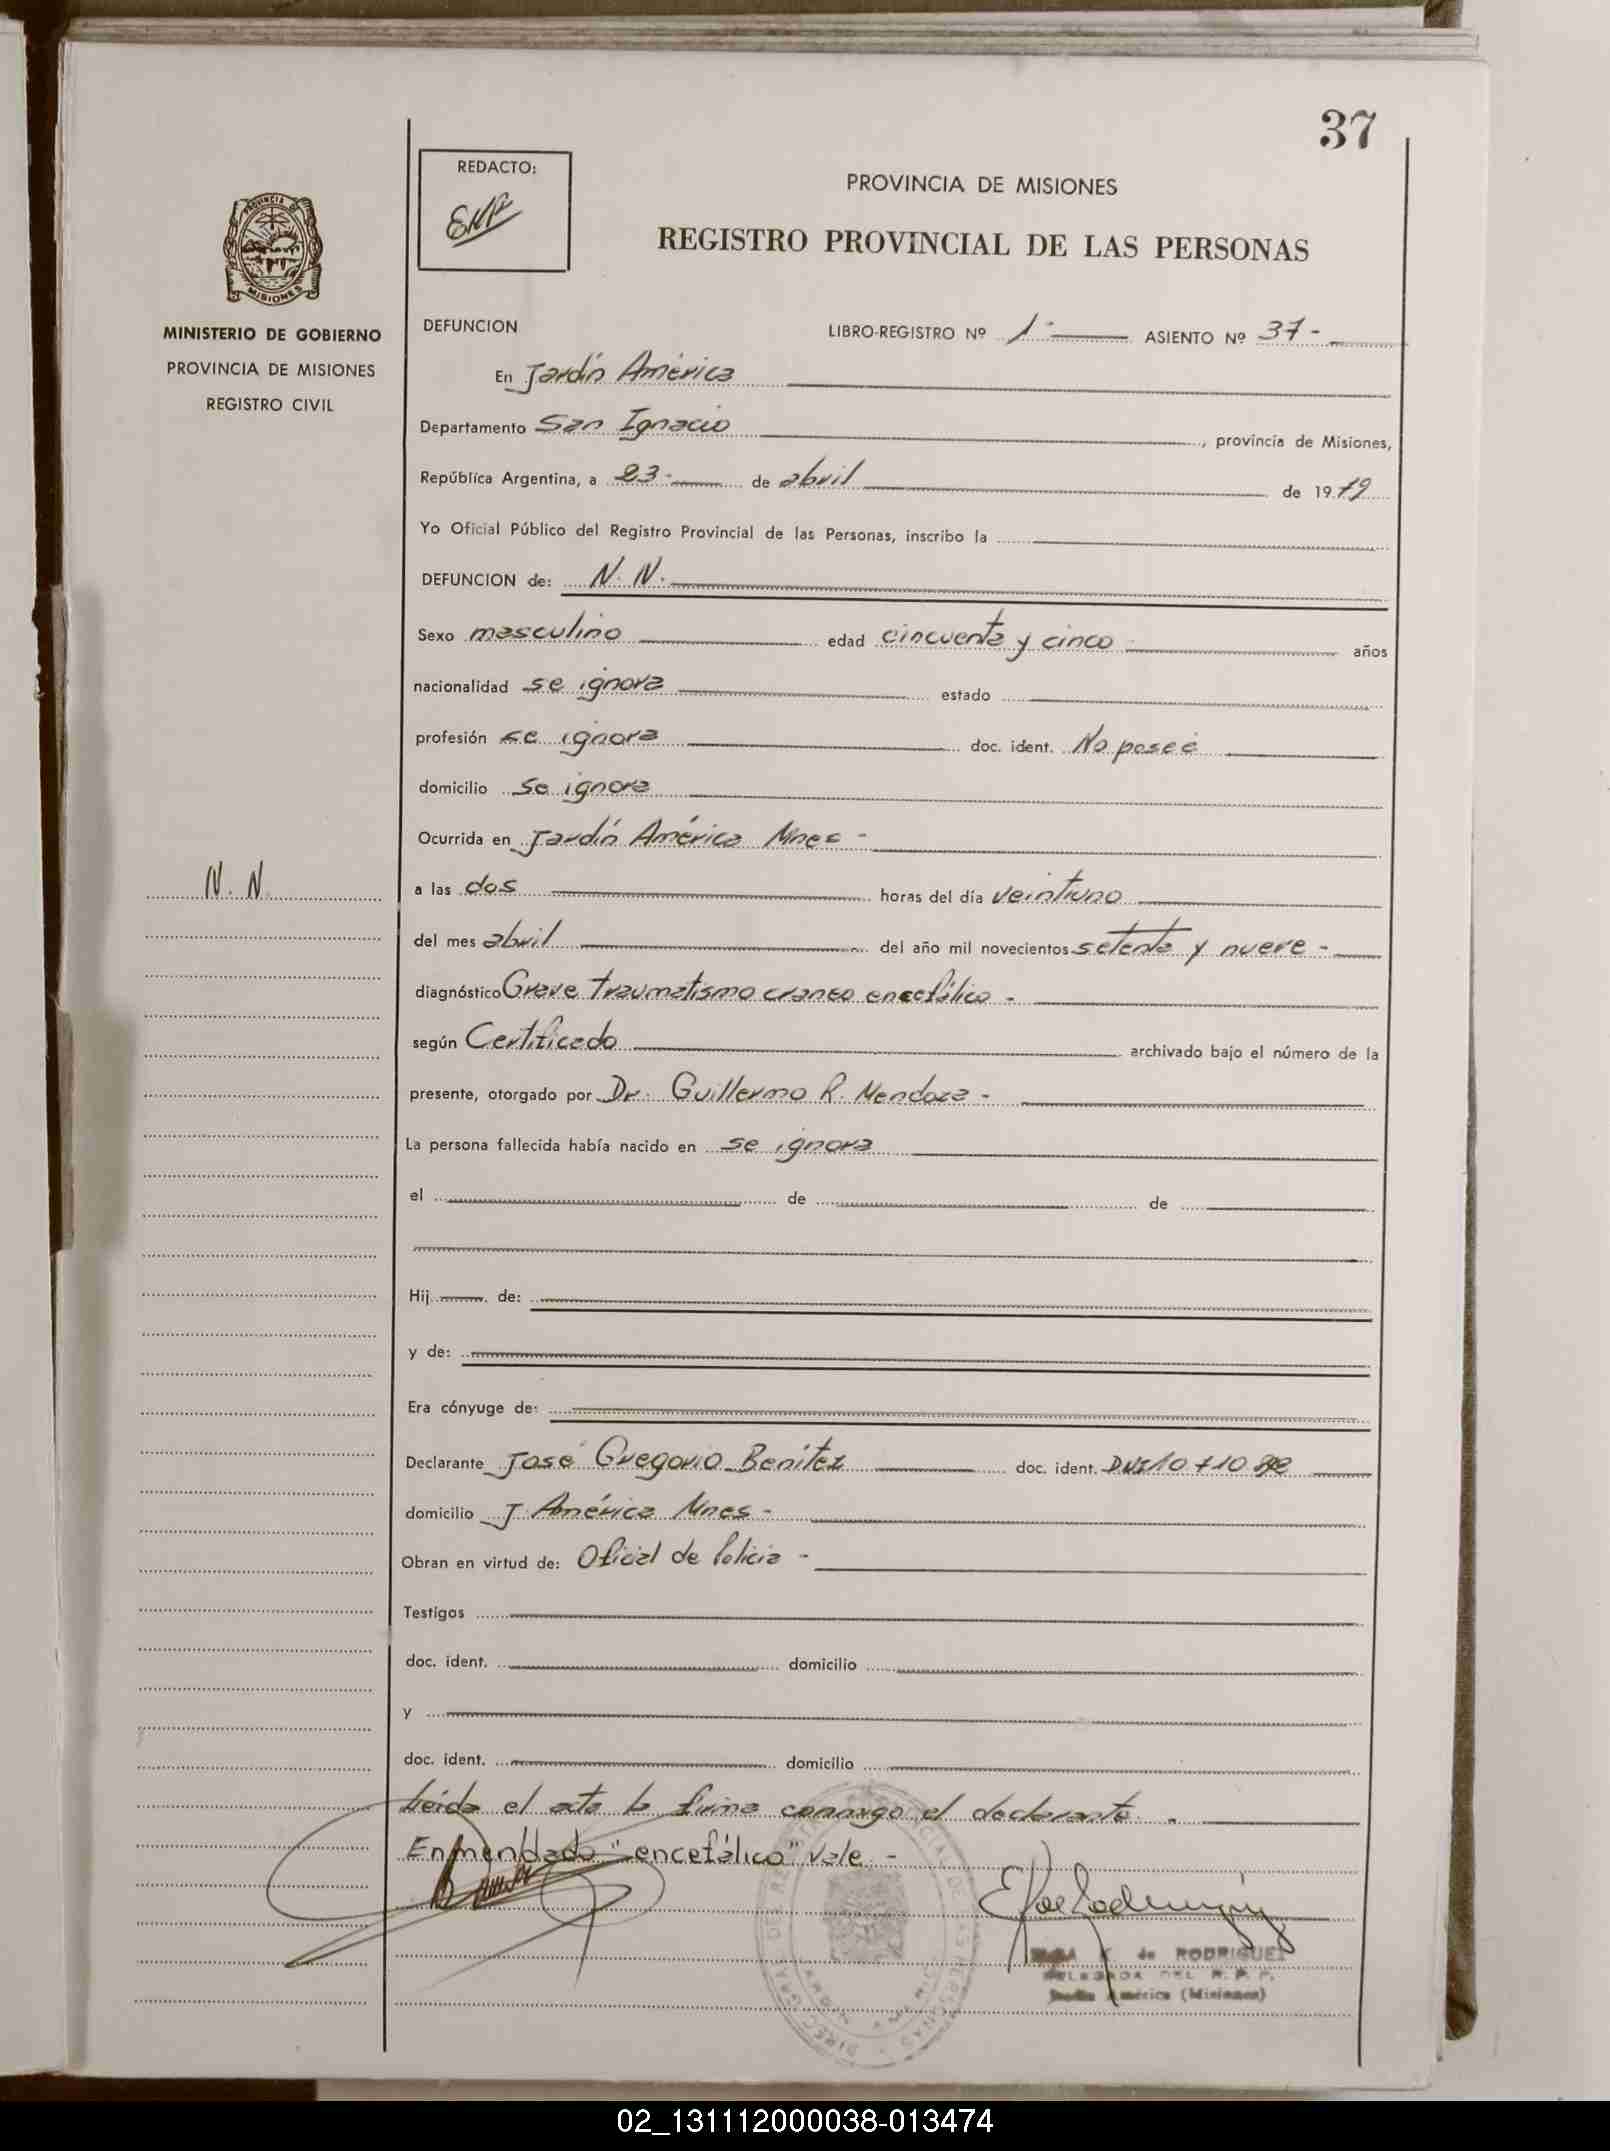 37
REDACTO:
PROVINCIA DE MISIONES
REGISTRO PROVINCIAL DE LAS PERSONAS
MISIONES
MINISTERIO DE GOBIERNO
PROVINCIA DE MISIONES
REGISTRO CIVIL
DEFUNCION LIBRO-REGISTRO Nº 1- ASIENTO Nº 37-
En Jardín América
Departamento San Ignacio, provincia de Misiones,
República Argentina, a 23- de abril de 1979
Yo Oficial Público del Registro Provincial de las Personas, inscribo la
DEFUNCION de: N. N.
Sexo masculino edad cincuenta y cinco años
nacionalidad se ignora estado
profesión se ignora doc. ident. No posee
domicilio se ignora
Ocurrida en Jardín América Mnes-
N. N.
a las dos horas del día veintiuno
del mes abril del año mil novecientos setenta y nueve-
diagnóstico Grave traumatismo craneo encefálico-
según Certificado archivado bajo el número de la
presente, otorgado por Dr. Guillermo R. Mendoza-
La persona fallecida había nacido en se ignora
el de de
Hij de:
y de:
Era cónyuge de:
Declarante José Gregorio Benítez doc. ident. DNI
domicilio J. América Mnes-
Obran en virtud de: Oficial de Policia-
Testigos
doc. ident. domicilio
y
doc. ident. domicilio
Leída el acta la firma conmigo el declarante.
Enmendado "encefálico" Vale-
de RODRIGUEZ
DELEGADA DEL R. P. P.
Jardín América (Misiones)
02_131112000038-013474